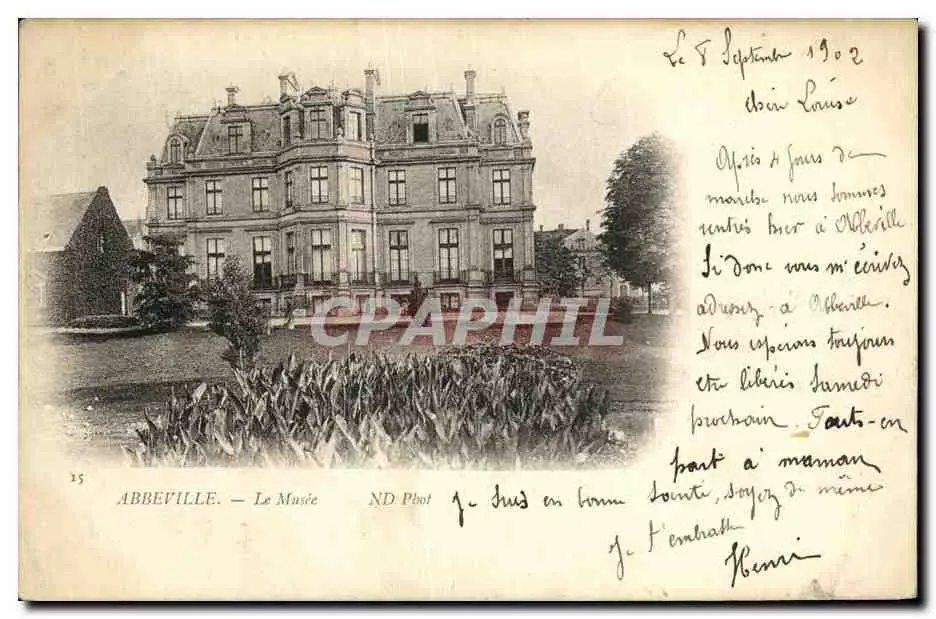 Le 8 Septembre 1902
Chèr Louise
Après 4 Jours de
marche nous sommes
rentrés hier à Abbeville
Si donc vous m'écrivez
adressez-à Abbeville.
Nous espérons toujours
etre libérés Samedi
prochain. Fauts-en
part à maman
Je suis en bonne Santée, soyez de même
Je t'embrasse
Henri
CPCAPHIL
15
ABBEVILLE. — Le Musée ND Phot